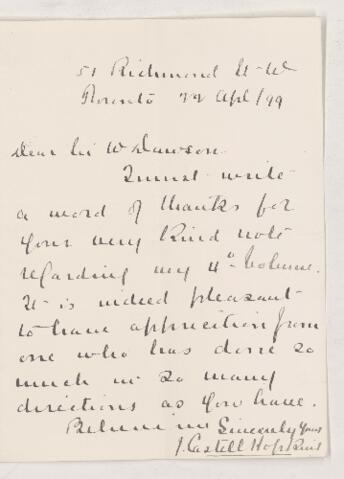 51 Richmond St. W
Toronto 22 Apl/99
Dear Sir W Dawson
I must write
a word of thanks for
your very kind note
regarding my 4th Volume.
It is indeed pleasant
to have appreciation from
one who has done so
much in so many
directions as you have.
Believe me Sincerely Yours
J. Castell Hopkins